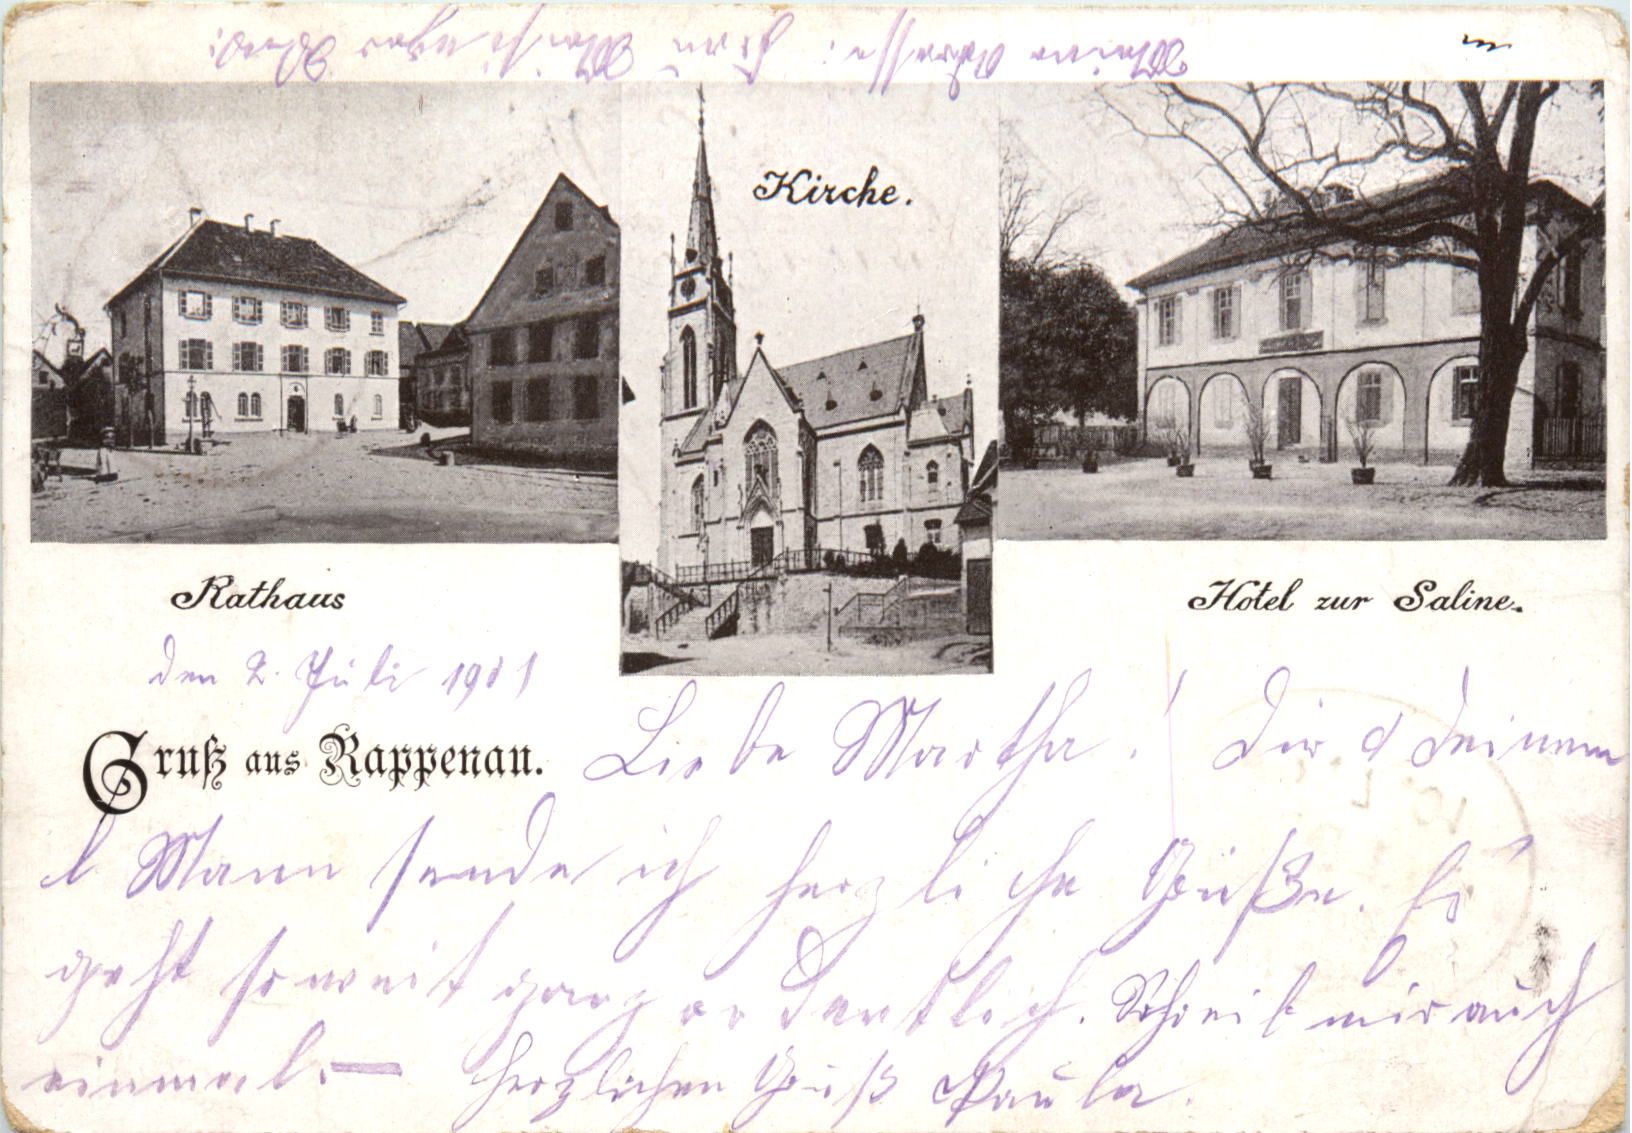 Meine Adresse: Frau
Kirche.
Rathaus
Hotel zur Saline.
den 2. Juli 1911
Gruß aus Rappenau.
Liebe Martha! Dir & deinem
l. Mann sende ich herzliche Grüße. Es
geht soweit ganz ordentlich. Schreib mir auch
einmal. — Herzlichen Gruß Paula.